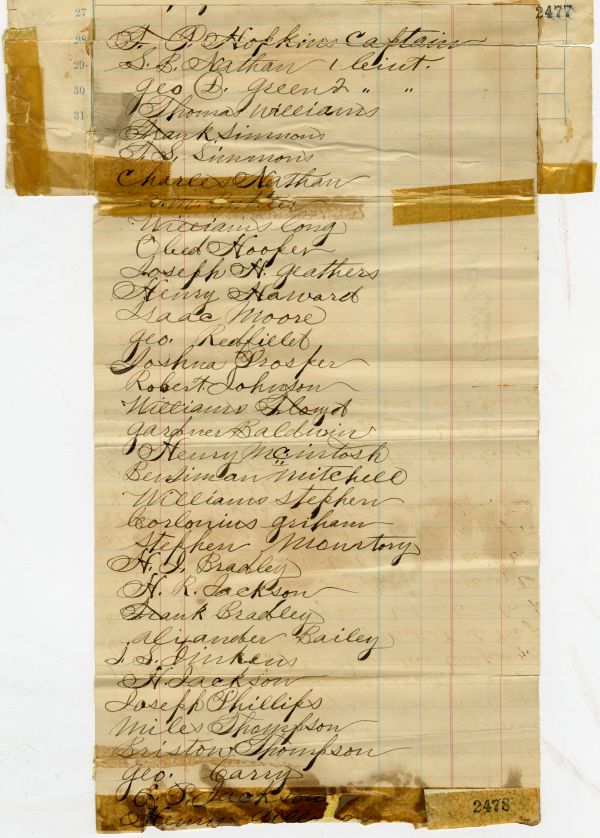 27
2477
28
F. P. Hopkins Captain
29
S. B. Nathan 1 leiut.
30
Geo D. Green 2 " "
31
Thomas Williams
Frank Simmons
F. S. Simmons
Charles Nathan
Williams Long
Obed Hooper
Joseph H. Geathers
Henry Haward
Isaac Moore
Geo. Redfilled
Joshua Prosper
Robert Johnson
Williams Floyd
Gardner Baldwin
Henry McIntosh
Bensiman Mitchell
Williams Stephen
Corlonius Griham
Stephen Monatory
H. J. Bradley
H. R. Jackson
Frank Bradley
Alixander Bailey
J. S. Jinkens
H. Jackson
Joseph Phillips
Miles Thompson
Bristow Thompson
Geo. Carry
Jackson
Henry
2478